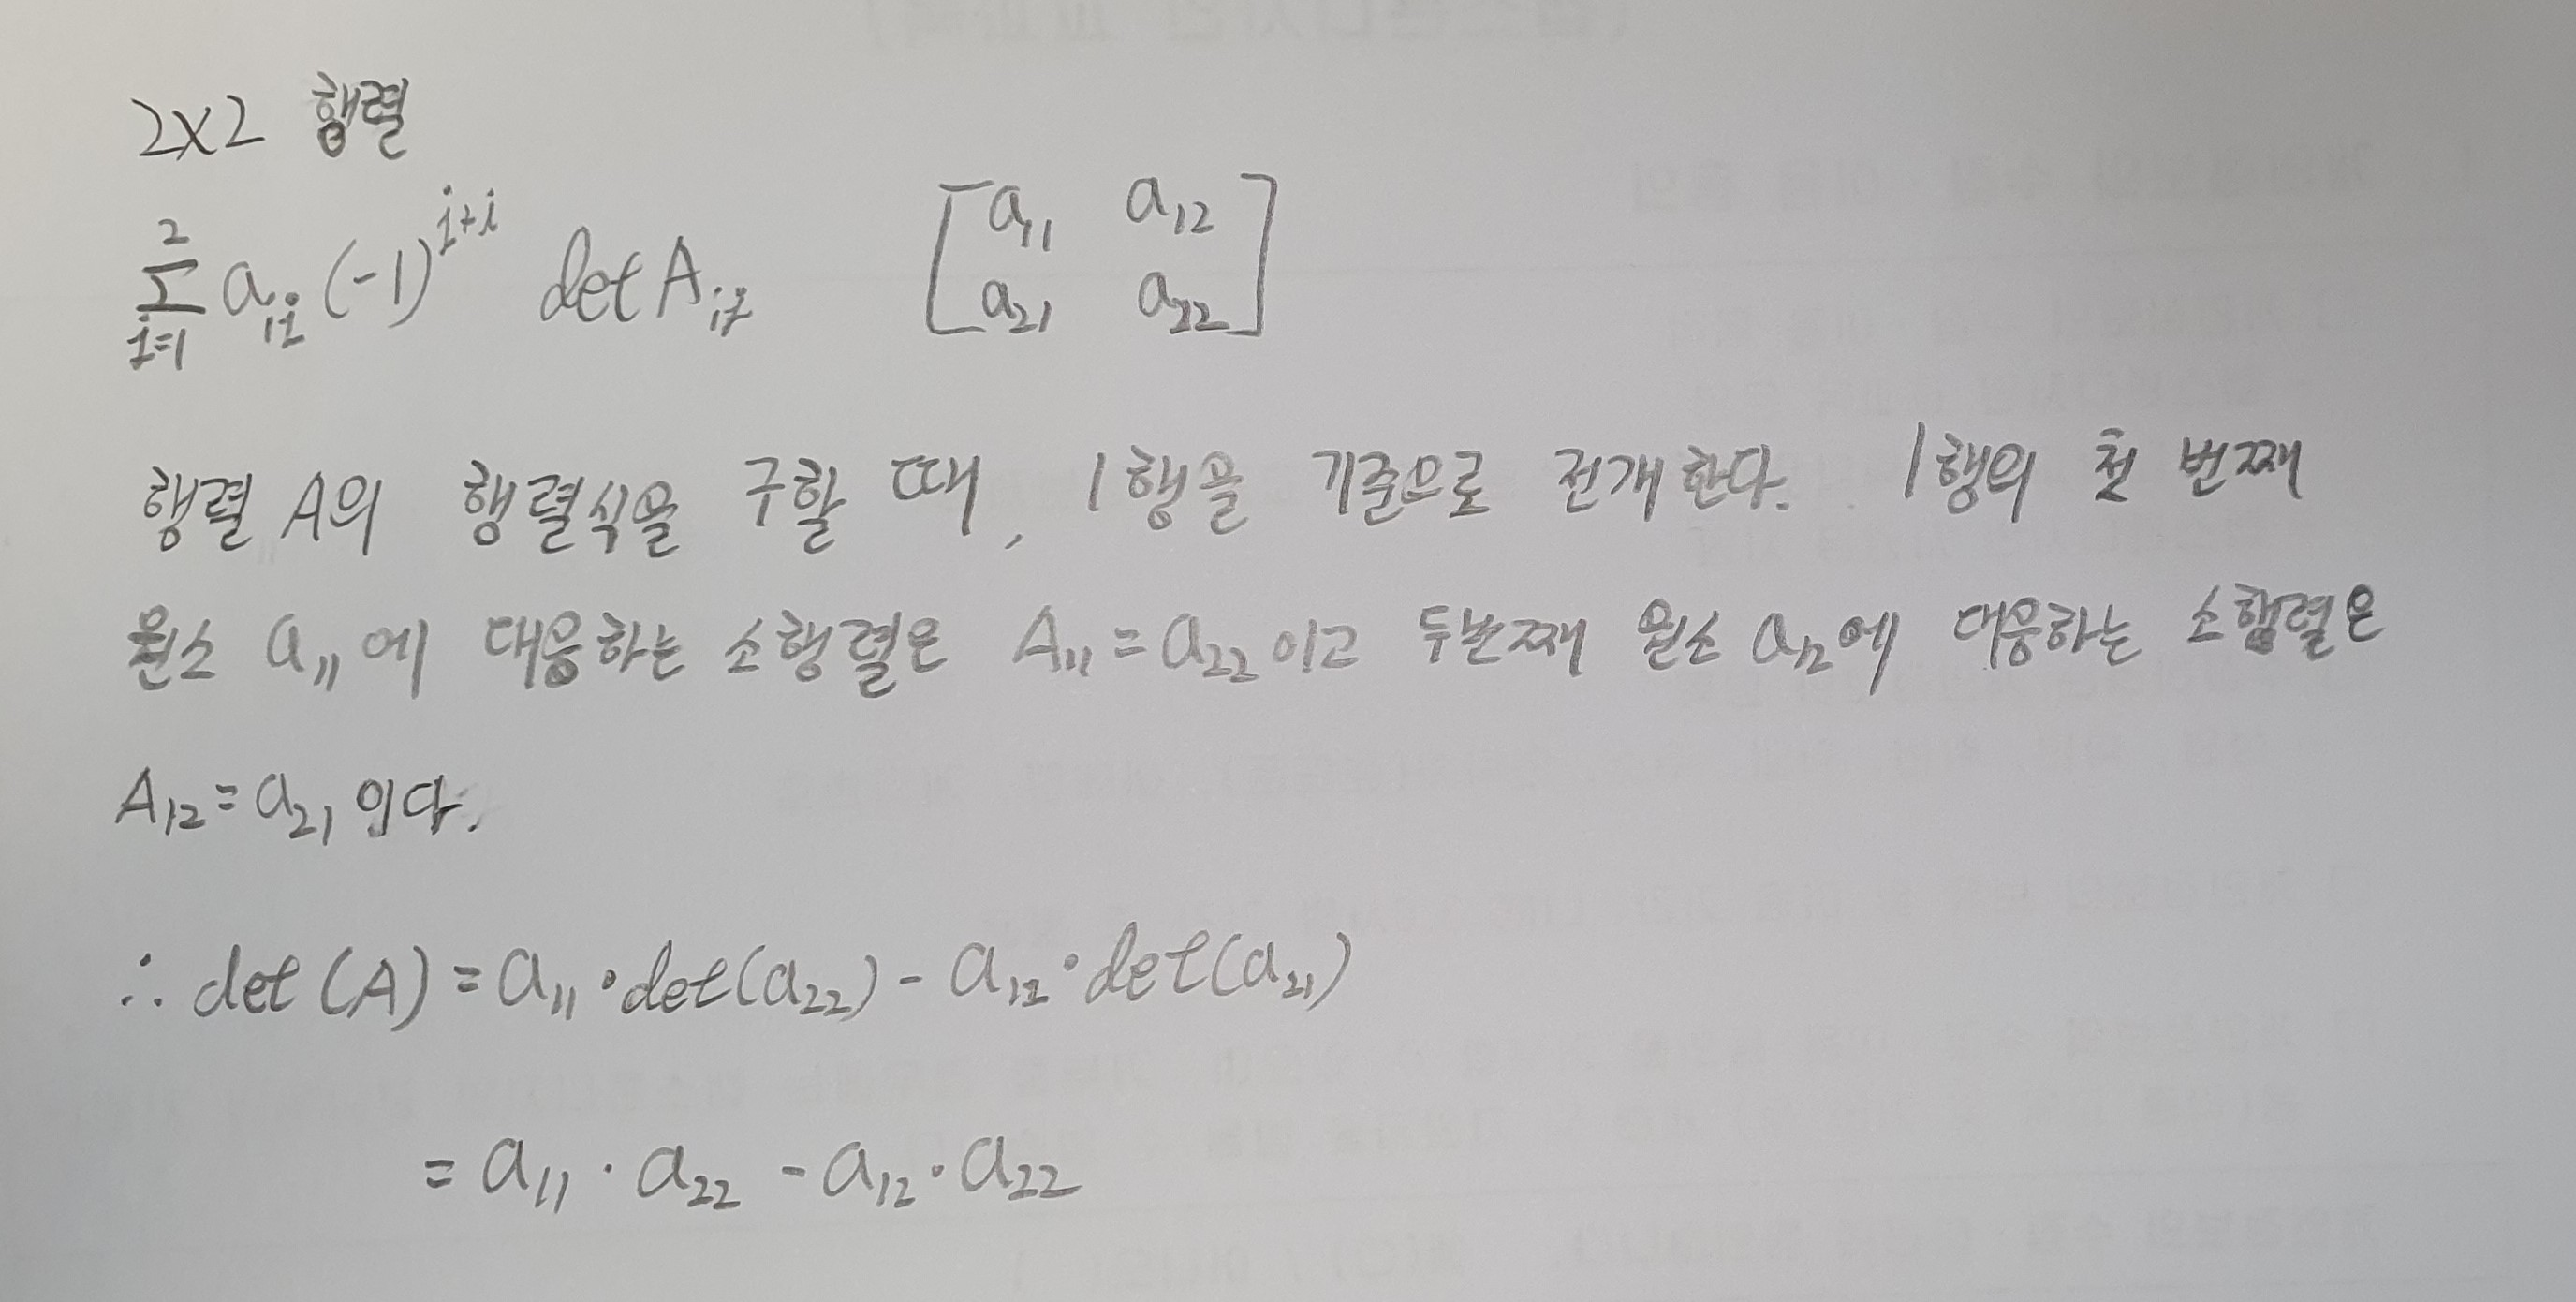 2x2 행렬
\sum_{i=1}^{2} a_{1i} (-1)^{1+i} det A_{1i} \begin{bmatrix} a_{11} & a_{12} \\ a_{21} & a_{22} \end{bmatrix}
행렬 A의 행렬식을 구할 때, 1행을 기준으로 전개한다. 1행의 첫 번째
원소 a_{11}에 대응하는 소행렬은 A_{11} = a_{22}이고 두번째 원소 a_{12}에 대응하는 소행렬은
A_{12} = a_{21}이다.
∴ det(A) = a_{11}·det(a_{22}) - a_{12}·det(a_{21})
= a_{11}·a_{22} - a_{12}·a_{22}